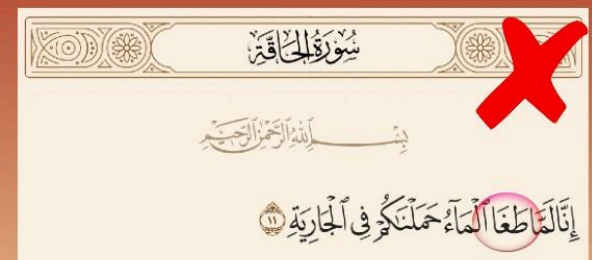 سُورَةُ الحَاقَّةِ
بِسْمِ ٱللَّهِ ٱلرَّحْمَٰنِ ٱلرَّحِيمِ
إِنَّا لَمَّا طَغَا ٱلْمَآءُ حَمَلْنَٰكُمْ فِى ٱلْجَارِيَةِ ١١